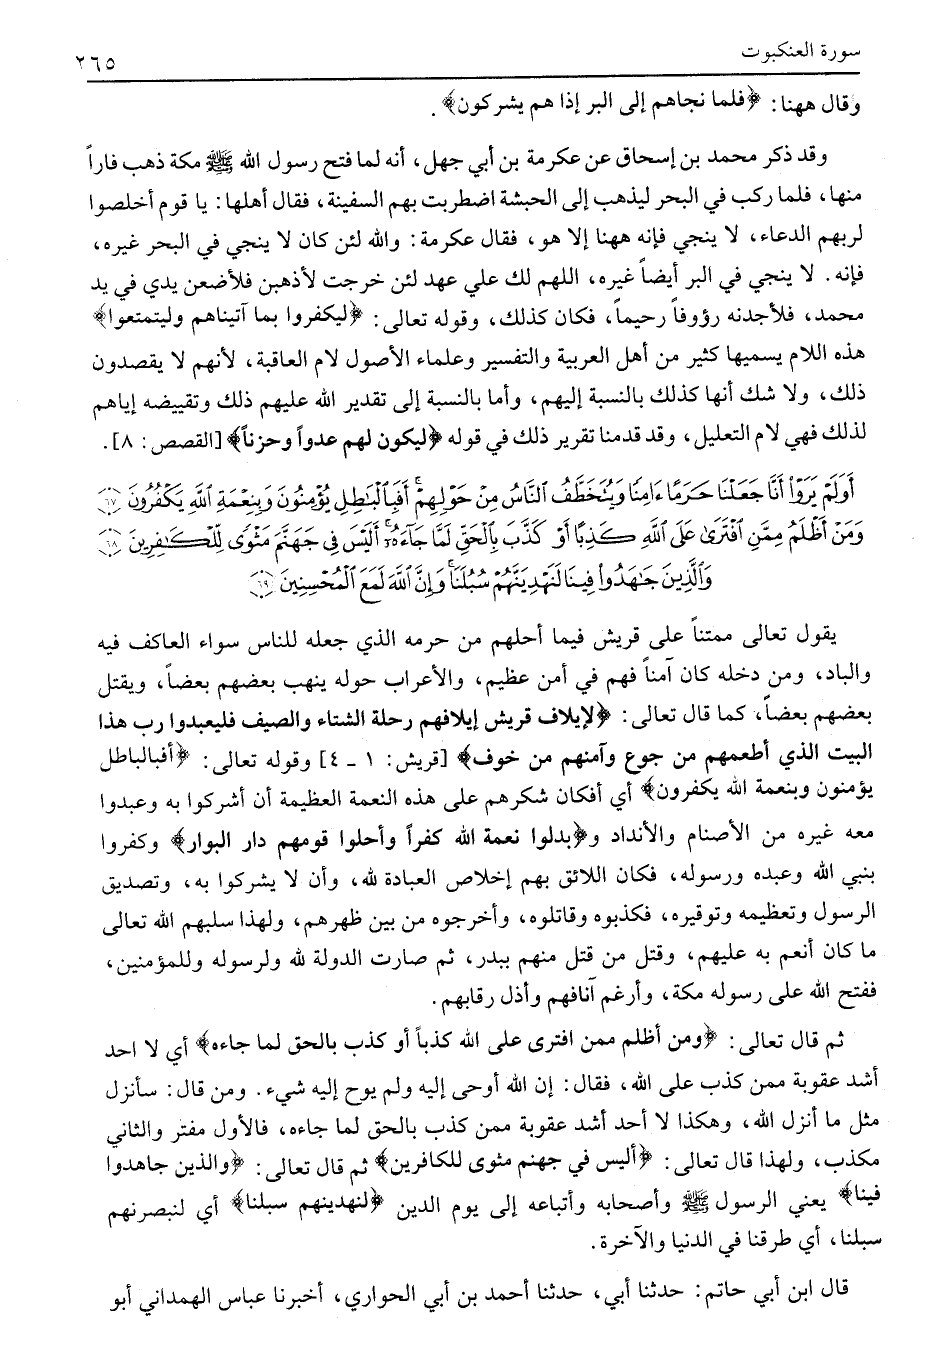 سورة العنكبوت
٢٦٥
وقال ههنا: ﴿فلما نجاهم إلى البر إذا هم يشركون﴾.
وقد ذكر محمد بن إسحاق عن عكرمة بن أبي جهل، أنه لما فتح رسول الله ﷺ مكة ذهب فاراً
منها، فلما ركب في البحر ليذهب إلى الحبشة اضطربت بهم السفينة، فقال أهلها: يا قوم أخلصوا
لربهم الدعاء، لا ينجي فإنه ههنا إلا هو، فقال عكرمة: والله لئن كان لا ينجي في البحر غيره،
فإنه. لا ينجي في البر أيضاً غيره، اللهم لك علي عهد لئن خرجت لأذهبن فلأضعن يدي في يد
محمد، فلأجدنه رؤوفاً رحيماً، فكان كذلك، وقوله تعالى: ﴿ليكفروا بما آتيناهم وليتمتعوا﴾
هذه اللام يسميها كثير من أهل العربية والتفسير وعلماء الأصول لام العاقبة، لأنهم لا يقصدون
ذلك، ولا شك أنها كذلك بالنسبة إليهم، وأما بالنسبة إلى تقدير الله عليهم ذلك وتقييضه إياهم
لذلك فهي لام التعليل، وقد قدمنا تقرير ذلك في قوله ﴿ليكون لهم عدواً وحزناً﴾ [القصص: ٨].
أَوَلَمْ يَرَوْا أَنَّا جَعَلْنَا حَرَمًا ءَامِنًا وَيُتَخَطَّفُ النَّاسُ مِنْ حَوْلِهِمْ أَفَبِالْبَاطِلِ يُؤْمِنُونَ وَبِنِعْمَةِ اللَّهِ يَكْفُرُونَ ﴿٦٧﴾
وَمَنْ أَظْلَمُ مِمَّنِ افْتَرَىٰ عَلَى اللَّهِ كَذِبًا أَوْ كَذَّبَ بِالْحَقِّ لَمَّا جَاءَهُ أَلَيْسَ فِي جَهَنَّمَ مَثْوًى لِلْكَافِرِينَ ﴿٦٨﴾
وَالَّذِينَ جَاهَدُوا فِينَا لَنَهْدِيَنَّهُمْ سُبُلَنَا وَإِنَّ اللَّهَ لَمَعَ الْمُحْسِنِينَ ﴿٦٩﴾
يقول تعالى ممتناً على قريش فيما أحلهم من حرمه الذي جعله للناس سواء العاكف فيه
والباد، ومن دخله كان آمناً فهم في أمن عظيم، والأعراب حوله ينهب بعضهم بعضاً، ويقتل
بعضهم بعضاً، كما قال تعالى: ﴿لإيلاف قريش إيلافهم رحلة الشتاء والصيف فليعبدوا رب هذا
البيت الذي أطعمهم من جوع وآمنهم من خوف﴾ [قريش: ١ - ٤] وقوله تعالى: ﴿أفبالباطل
يؤمنون وبنعمة الله يكفرون﴾ أي أفكان شكرهم على هذه النعمة العظيمة أن أشركوا به وعبدوا
معه غيره من الأصنام والأنداد و﴿بدلوا نعمة الله كفراً وأحلوا قومهم دار البوار﴾ وكفروا
بنبي الله وعبده ورسوله، فكان اللائق بهم إخلاص العبادة لله، وأن لا يشركوا به، وتصديق
الرسول وتعظيمه وتوقيره، فكذبوه وقاتلوه، وأخرجوه من بين ظهرهم، ولهذا سلبهم الله تعالى
ما كان أنعم به عليهم، وقتل من قتل منهم ببدر، ثم صارت الدولة لله ولرسوله وللمؤمنين،
ففتح الله على رسوله مكة، وأرغم آنافهم وأذل رقابهم.
ثم قال تعالى: ﴿ومن أظلم ممن افترى على الله كذباً أو كذب بالحق لما جاءه﴾ أي لا احد
أشد عقوبة ممن كذب على الله، فقال: إن الله أوحى إليه ولم يوح إليه شيء. ومن قال: سأنزل
مثل ما أنزل الله، وهكذا لا أحد أشد عقوبة ممن كذب بالحق لما جاءه، فالأول مفتر والثاني
مكذب، ولهذا قال تعالى: ﴿أليس في جهنم مثوى للكافرين﴾ ثم قال تعالى: ﴿والذين جاهدوا
فينا﴾ يعني الرسول ﷺ وأصحابه وأتباعه إلى يوم الدين ﴿لنهدينهم سبلنا﴾ أي لنبصرنهم
سبلنا، أي طرقنا في الدنيا والآخرة.
قال ابن أبي حاتم: حدثنا أبي، حدثنا أحمد بن أبي الحواري، أخبرنا عباس الهمداني أبو